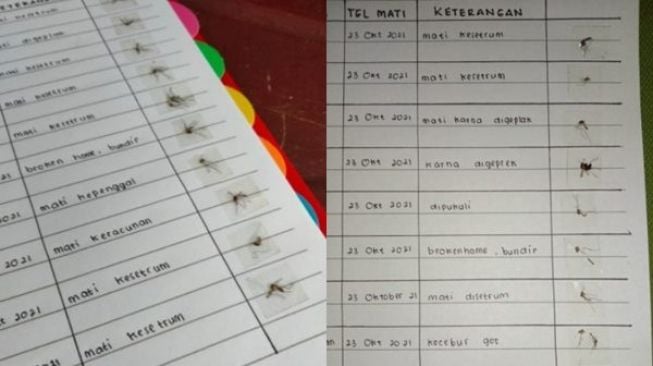 KETERANGAN
mati kesetrum
mati digeplak
mati kesetrum
mati kesetrum
mati kesetrum
21 broken home, bundir
2021 mati kepenggal
2021 mati keracunan
2021 mati kesetrum
2021 mati kesetrum
TGL MATI KETERANGAN
23 Okt 2021 mati kesetrum
23 Okt 2021 mati kesetrum
23 Okt 2021 mati karna digeplak
23 Okt 2021 karna digeprek
23 Okt 2021 dipukuli
23 Okt 2021 brokenhome, bundir
23 Oktober 21 mati disetrum
23 Okt 2021 kecebur got